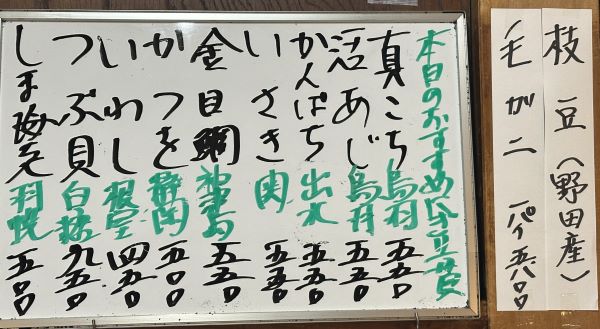 枝豆(野田産)
毛がニ 一パイ五八〇〇
本日のおすすめは豆貲
真こち 島村 五五〇
活あじ 鳥井 五五〇
かんぱち 出水 五五〇
いさき 関 五五〇
金目鯛 五五〇
かつを 静岡 五〇〇
いわし 根室 四五〇
つぶ貝 白糠 九五〇
しま海老 羽幌 五〇〇